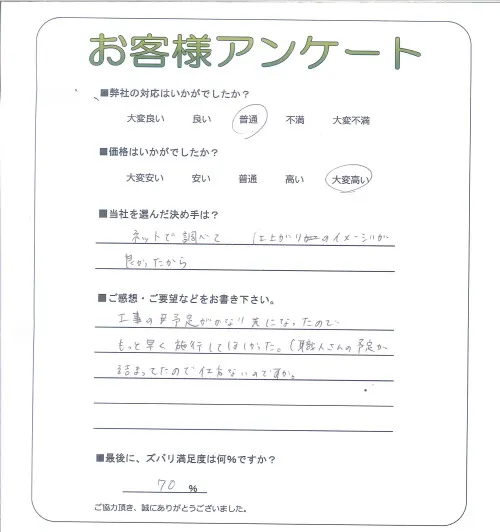 お客様アンケート
■弊社の対応はいかがでしたか?
大変良い 良い 普通 不満 大変不満
■価格はいかがでしたか?
大変安い 安い 普通 高い 大変高い
■当社を選んだ決め手は?
ネットで調べて 仕上がりのイメージが
良かったから
■ご感想・ご要望などをお書き下さい。
工事の予定がかなり先になったので
もっと早く施行してほしかった。(職人さんの予定が
詰まってたので仕方ないのですが。
■最後に、ズバリ満足度は何%ですか?
70 %
ご協力頂き、誠にありがとうございました。